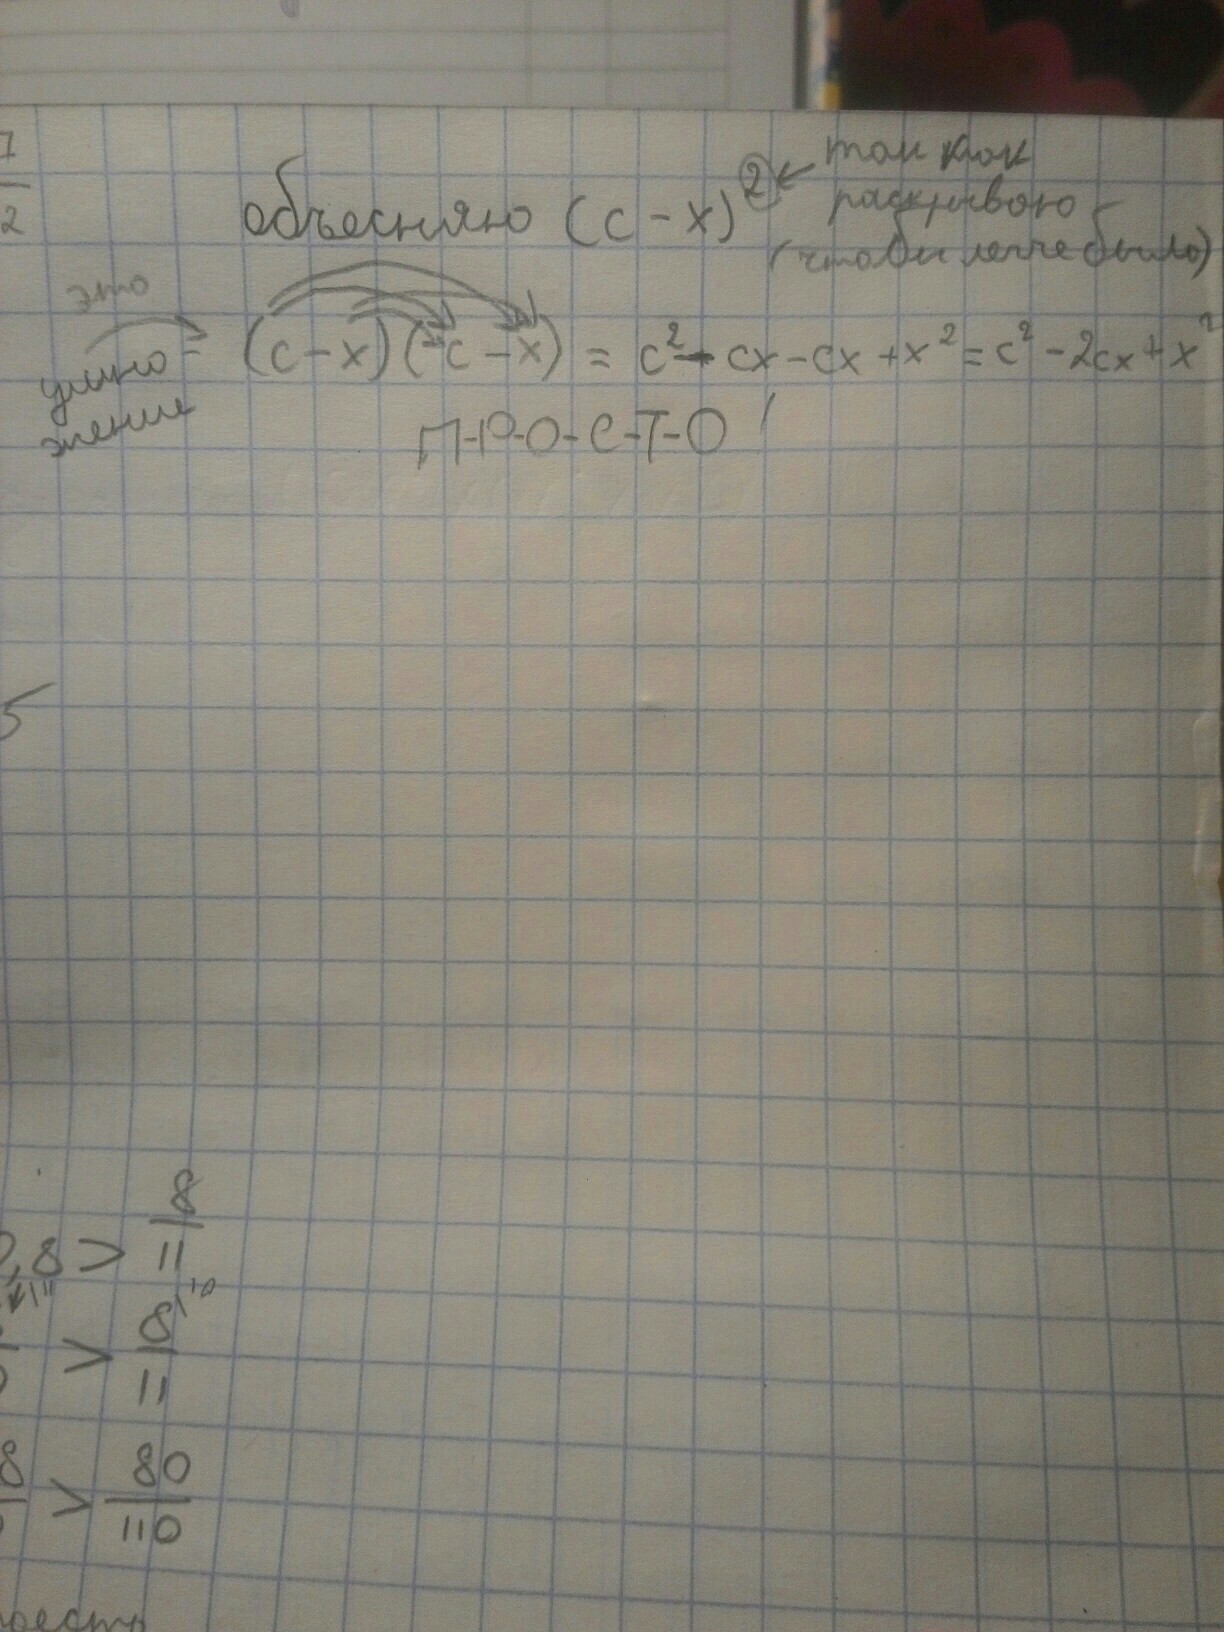 7
2
объесняю (c - x)² ← так как
раскрываю
(чтобы легче было)
это
умно
жение
(c - x)(c - x) = c² - cx - cx + x² = c² - 2cx + x²
П-Р-О-С-Т-О!
5
0,8 > 8/11
> 8/11
10
8 > 80/110